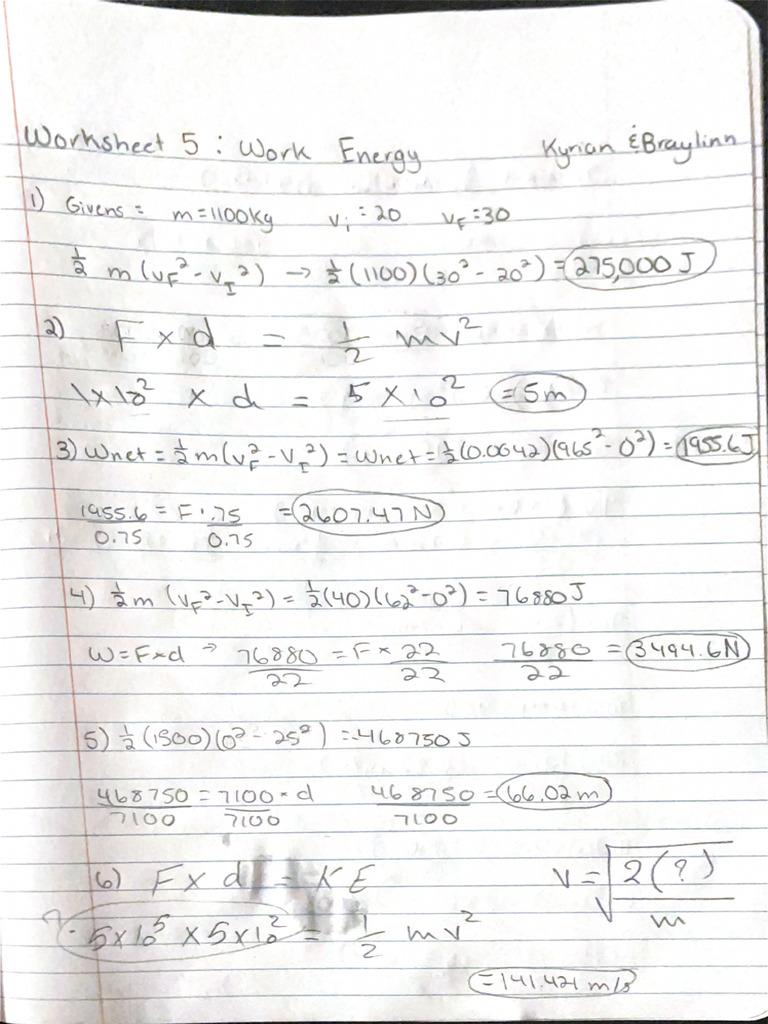 Worksheet 5 : Work Energy Kyrian & Braylinn
1) Givens = m=1100kg vᵢ=20 v_F=30
½ m (v_F² - v_I²) → ½ (1100)(30² - 20²) = 275,000 J
2) F x d = ½ mv²
1x10² x d = 5 x10² = 5m
3) Wnet = ½ m(v_F² - v_I²) = Wnet = ½(0.0042)(965² - 0²) = 1955.6J
1955.6/0.75 = F · .75/0.75 = 2607.47 N
4) ½ m (v_F² - v_I²) = ½(40)(62² - 0²) = 76880 J
W = F×d → 76880/22 = F × 22/22 76880/22 = 3494.6N
5) ½ (1500)(0² - 25²) = -468750 J
468750/7100 = 7100 × d/7100 468750/7100 = 66.02 m
6) F x d = KE v = √(2(?)/m)
? · 5x10⁵ x 5x10² = ½ mv²
= 141.421 m/s